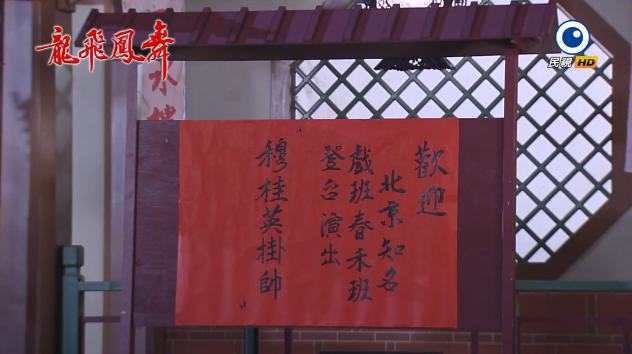 龍飛鳳舞
民視HD
歡迎
北京知名
戲班春禾班
登台演出
"穆桂英掛帥"
水